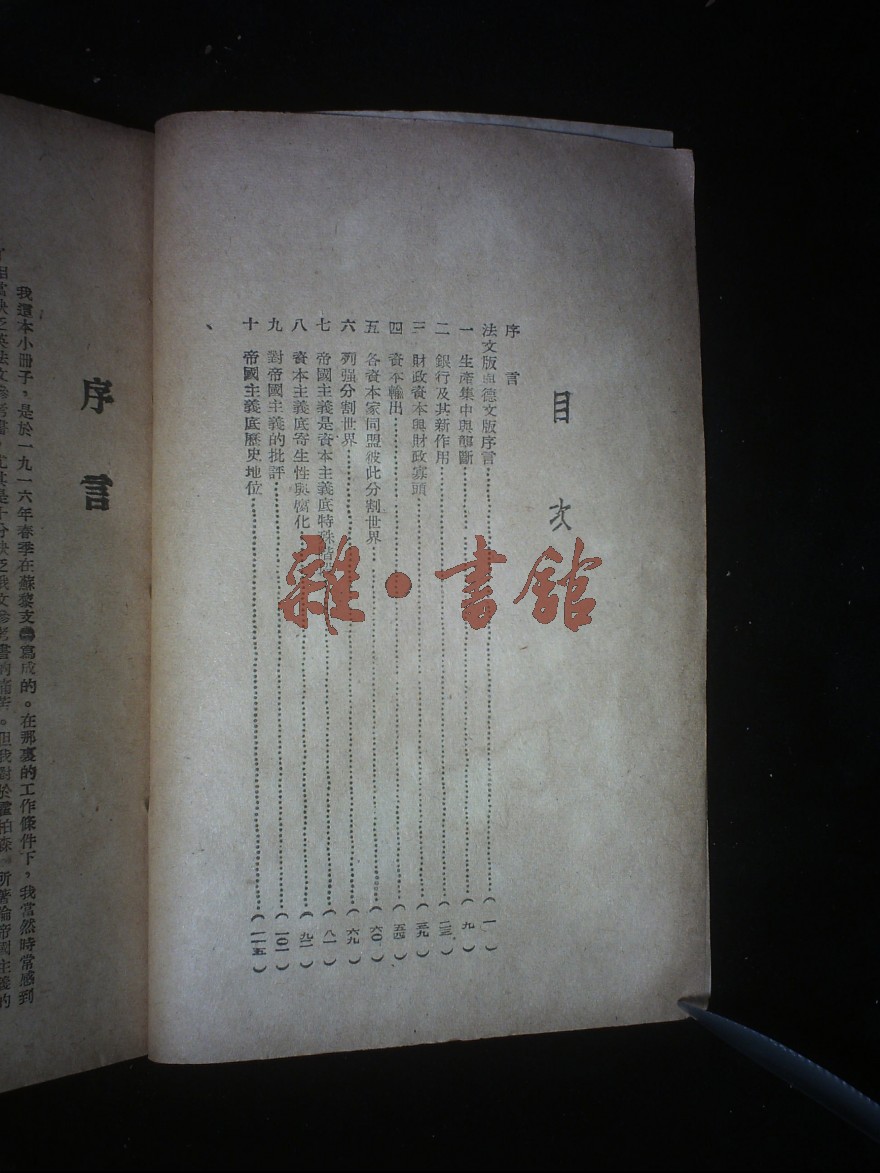 目次
序言
法文版與德文版序言(一)
一 生產集中與壟斷(九)
二 銀行及其新作用(二三)
三 財政資本與財政寡頭(三九)
四 資本輸出(五四)
五 各資本家同盟彼此分割世界(六〇)
六 列强分割世界(六九)
七 帝國主義是資本主義底特殊階段(八一)
八 資本主義底寄生性與腐化(九二)
九 對帝國主義的批評(一〇一)
十 帝國主義底歷史地位(一一五)
雜·書館
序言
我這本小冊子，是於一九一六年春季在蘇黎支寫成的。在那裏的工作條件下，我當然時常感到
相當缺乏英法文參考書，尤其是十分缺乏俄文參考書的痛苦。但我對於霍柏森所著論帝國主義的